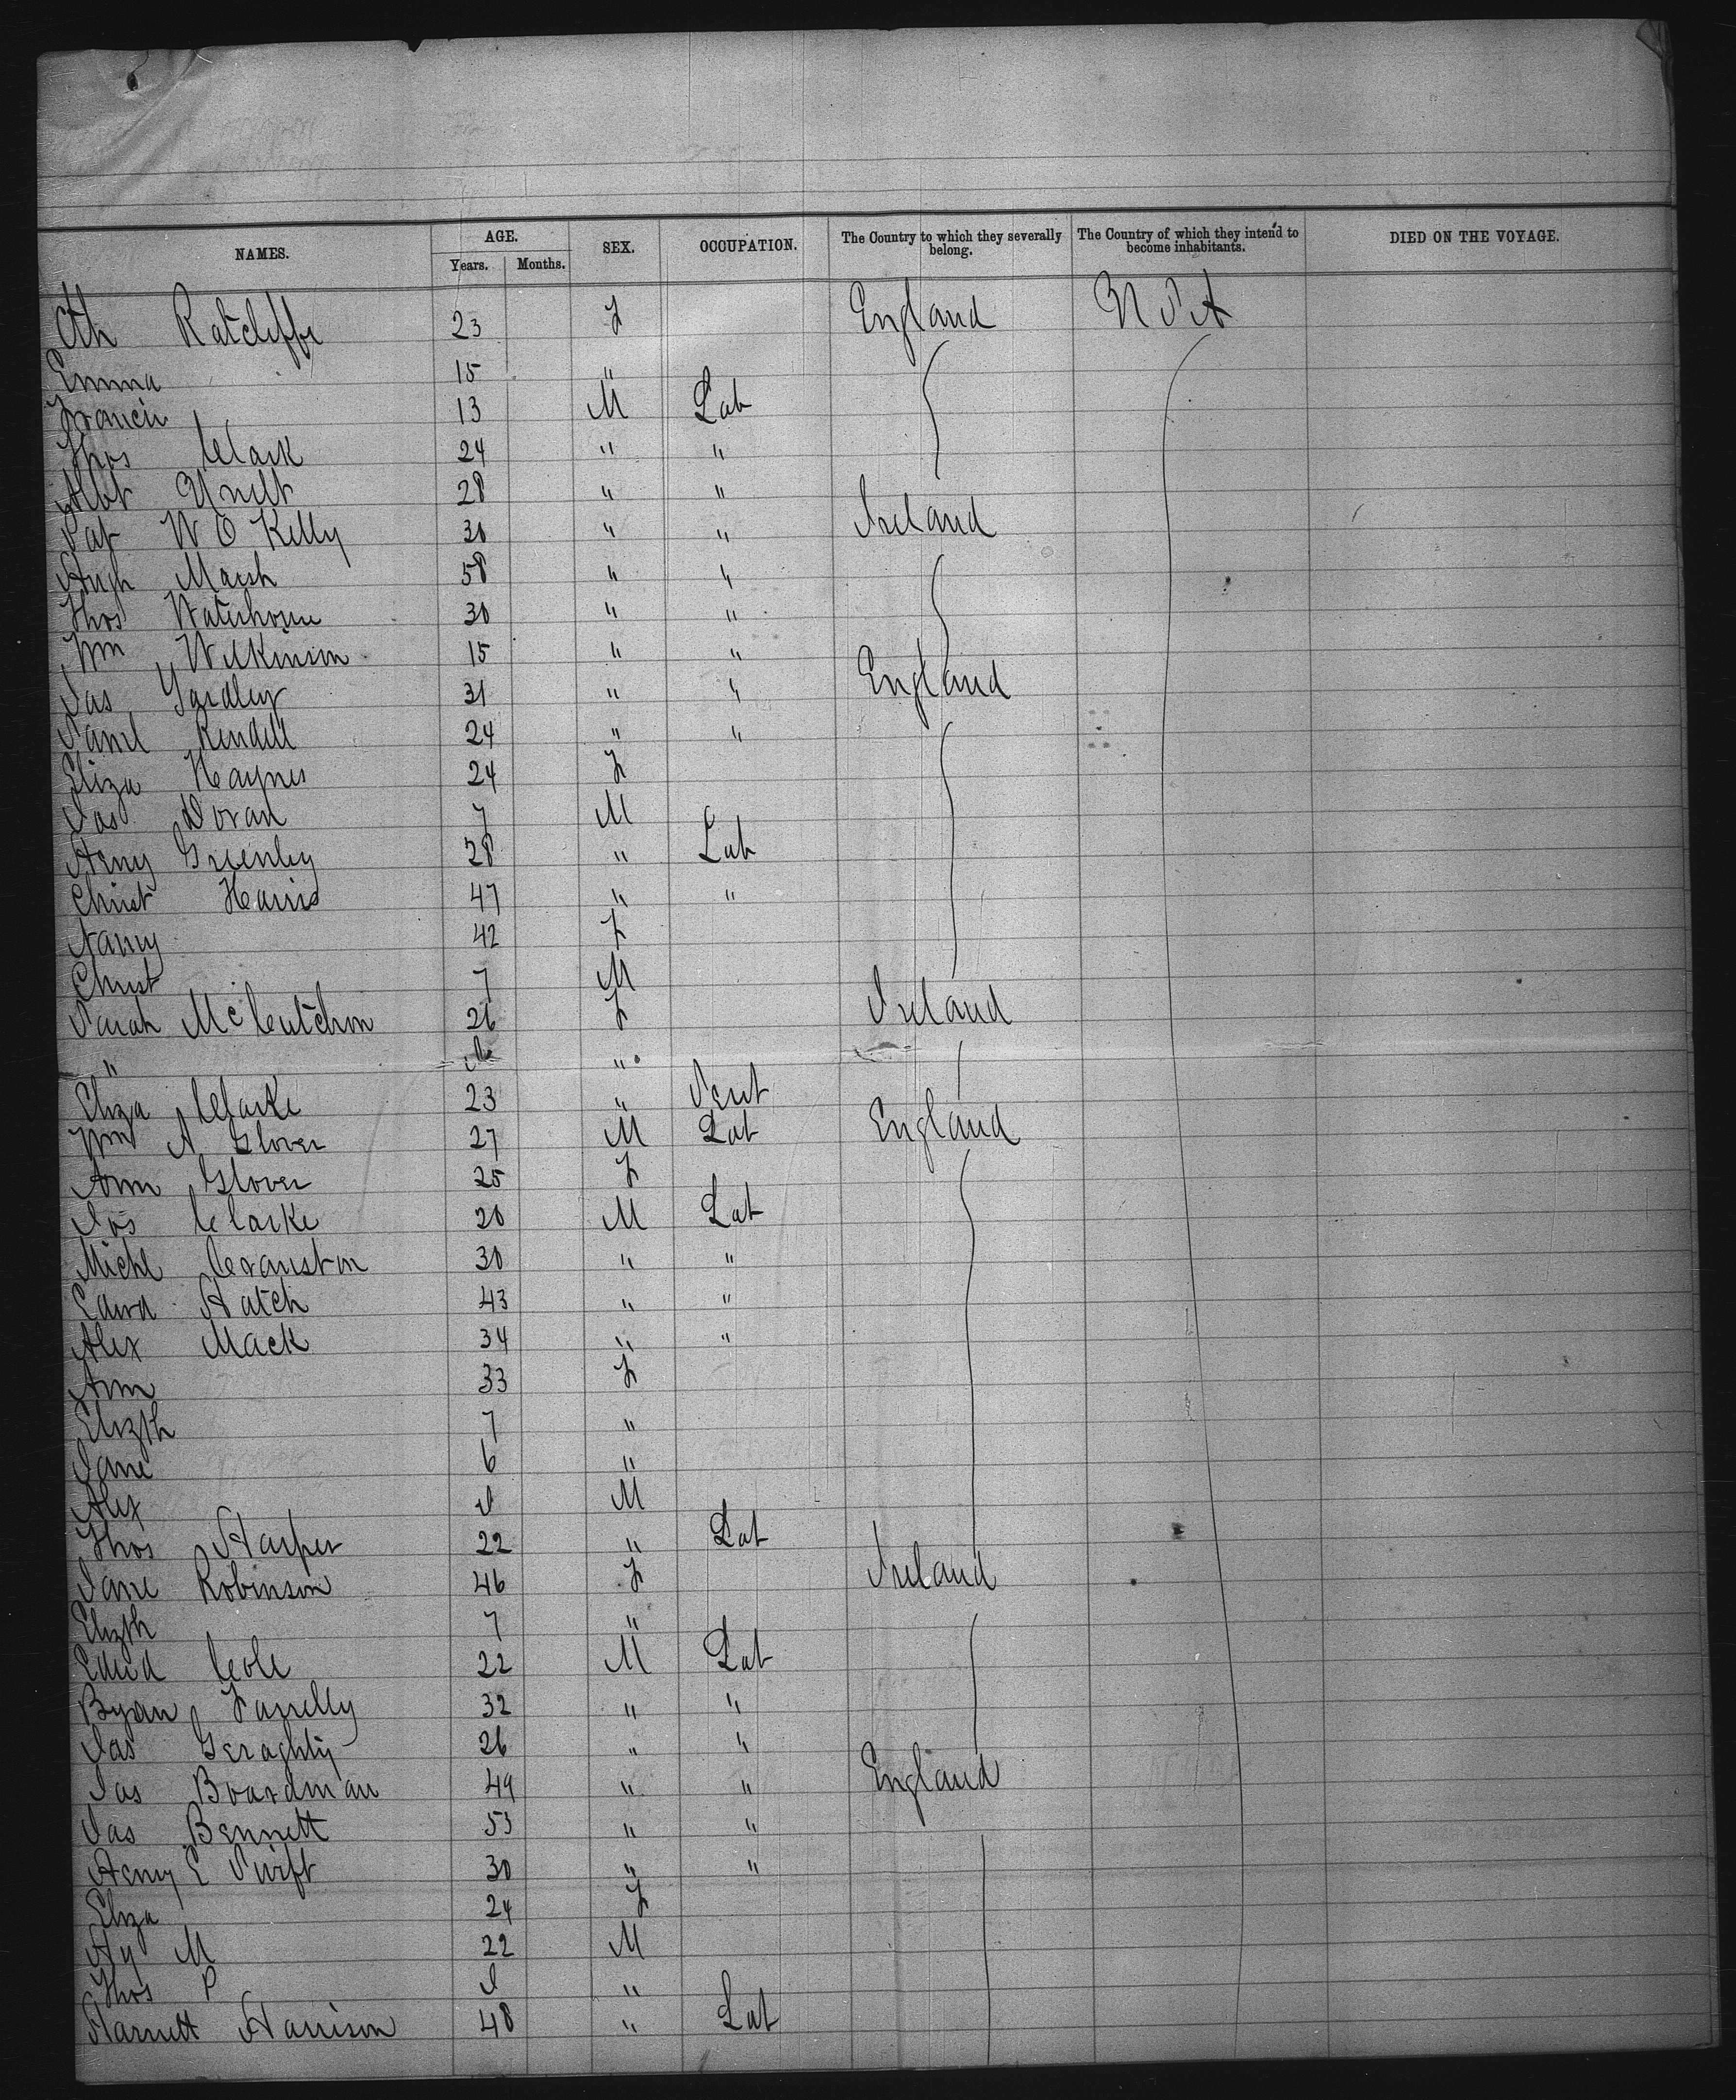 NAMES. AGE. SEX. OCCUPATION. The Country to which they severally belong. The Country of which they intend to become inhabitants. DIED ON THE VOYAGE.
Years. Months.
Eth Ratcliffe 23 F England U S A
Emma 15 "
Francis 13 M Lab
Thos Clark 24 " "
Albt 28 " "
Pat W O Kelly 30 " " Ireland
Hugh Marsh 58 " "
Thos Waterhouse 30 " "
Wm Wilkinson 15 " "
Jas Yardley 31 " " England
Saml Kendell 24 " "
Eliza Haynes 24 F
Jas Doran 7 M
Henry Greenley 28 " Lab
Christ Harris 47 " "
Nancy 42 F
Christ 7 M
Sarah McCutcheon 26 F Ireland
" I "
Eliza Clarke 23 " Servt
Wm A Glover 27 M Lab England
Ann Glover 25 F
Jos Clarke 20 M Lab
Michl Cranston 30 " "
Edwd Hatch 43 " "
Alex Mack 34 " "
Ann 33 F
Elizth 7 "
Jane 6 "
Alex I M
Thos Harper 22 " Lab
Jane Robinson 46 F Ireland
Elizth 7 "
Edwd Cole 22 M Lab
Bryan Farrelly 32 " "
Jas Geraghty 26 " "
Jas Boardman 49 " " England
Jas Bennett 53 " "
Henry E Swift 30 " "
Eliza 24 F
Hy M 22 M
Thos P I "
Harriett Harrison 48 " Lab